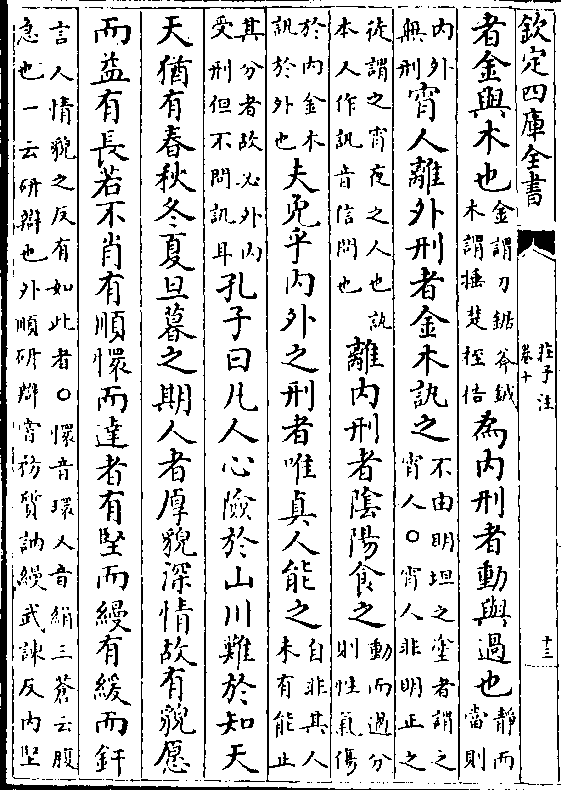 欽定四庫全書
莊子注
卷十
十三
者金與木也金謂刀鋸斧鉞木謂捶楚桎梏為內刑者動與過也靜而當則
內外無刑宵人離外刑者金木訊之不由明坦之塗者謂之宵人○宵人非明正之
徒謂之宵夜之人也訊本人作訊音信問也離內刑者陰陽食之動而過分則性氣傷
於內金木訊於外也夫免乎內外之刑者唯真人能之自非其人未有能止
其分者故必外內受刑但不問訊耳孔子曰凡人心險於山川難於知天
天猶有春秋冬夏旦暮之期人者厚貌深情故有貌愿
而益有長若不肖有順懁而達者有堅而縵有緩而釬
言人情貌之反有如此者○懁音環人音絹三蒼云腹
急也一云研辯也外順研辯常務質訥縵武諫反內堅